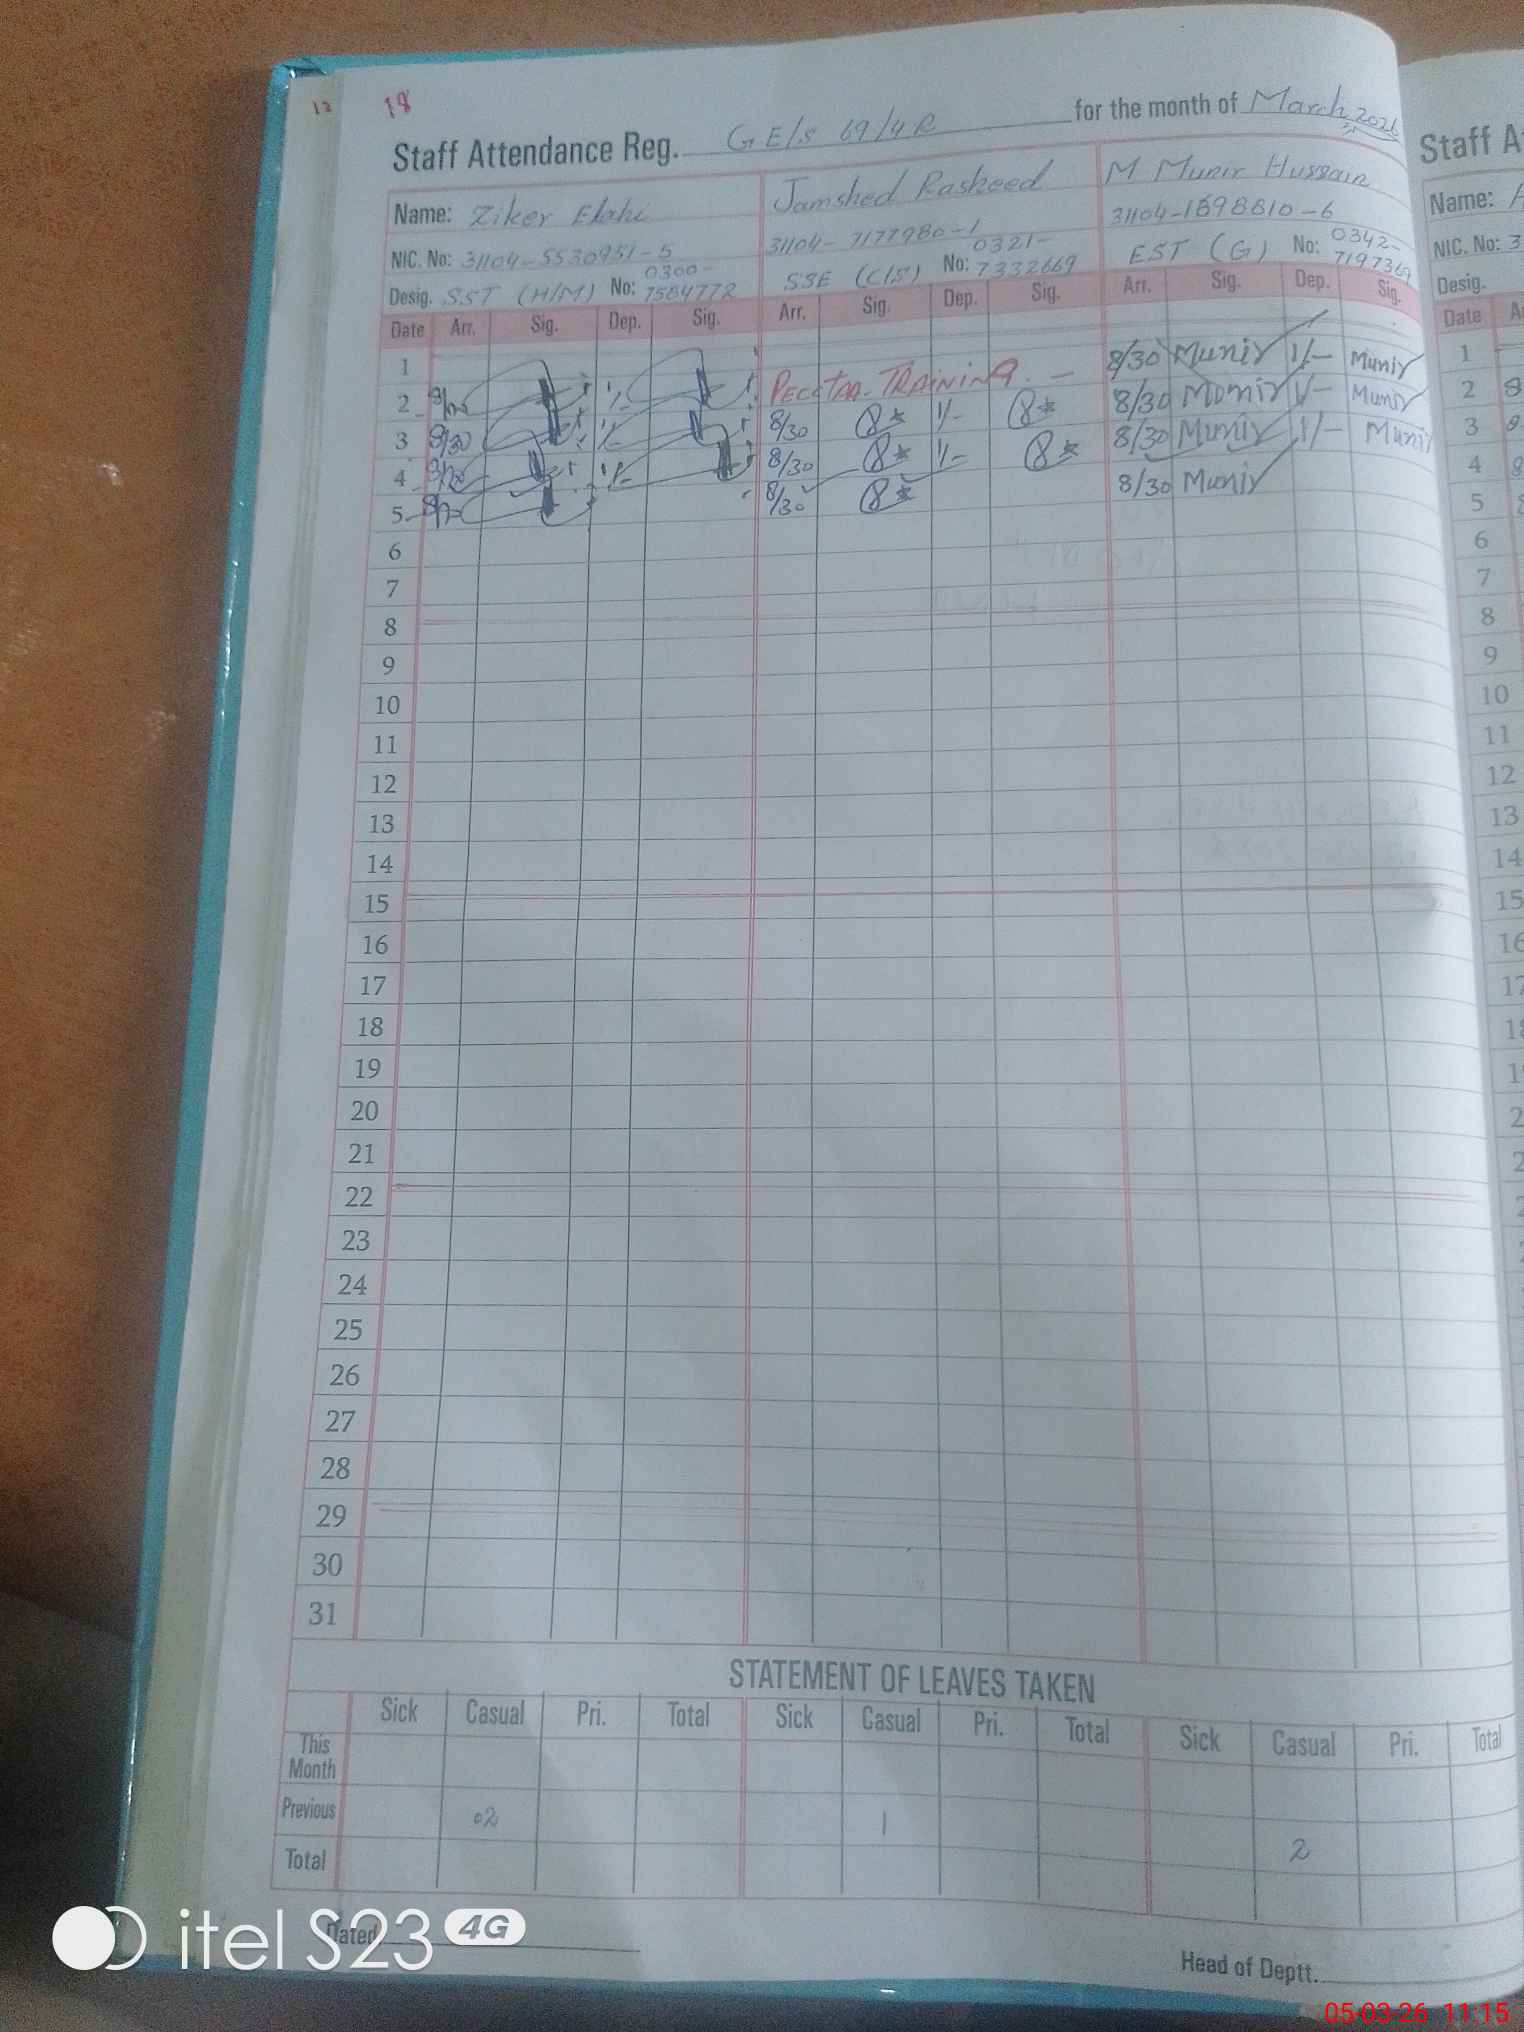 12 18
Staff Attendance Reg. GE/S 69/4R for the month of March 2026
Name: Ziker Elahi Jamshed Rasheed M Munir Hussain
NIC. No: 31104-5530951-5 31104-7177980-1 31104-1598810-6
Desig. SST (H/M) No: 0300-7584772 SSE (C/S) No: 0321-7332669 EST (G) No: 0342-7197369
Date Arr. Sig. Dep. Sig. Arr. Sig. Dep. Sig. Arr. Sig. Dep. Sig.
1
2 TRAINING. 8/30 Munir 1/- Munir
3 8/30 1/- 8/30 1/- 8/30 Munir 1/- Munir
4 1/- 8/30 1/- 8/30 Munir 1/- Munir
5 8/30 8/30 Munir
6
7
8
9
10
11
12
13
14
15
16
17
18
19
20
21
22
23
24
25
26
27
28
29
30
31
STATEMENT OF LEAVES TAKEN
Sick Casual Pri. Total Sick Casual Pri. Total Sick Casual Pri. Total
This Month
Previous 02 1 2
Total
Dated
Head of Deptt.
Staff A
Name:
NIC. No: 3
Desig.
Date
1
2
3
4
5
6
7
8
9
10
11
12
13
14
15
16
17
itel S23 4G
05-03-26 11:15